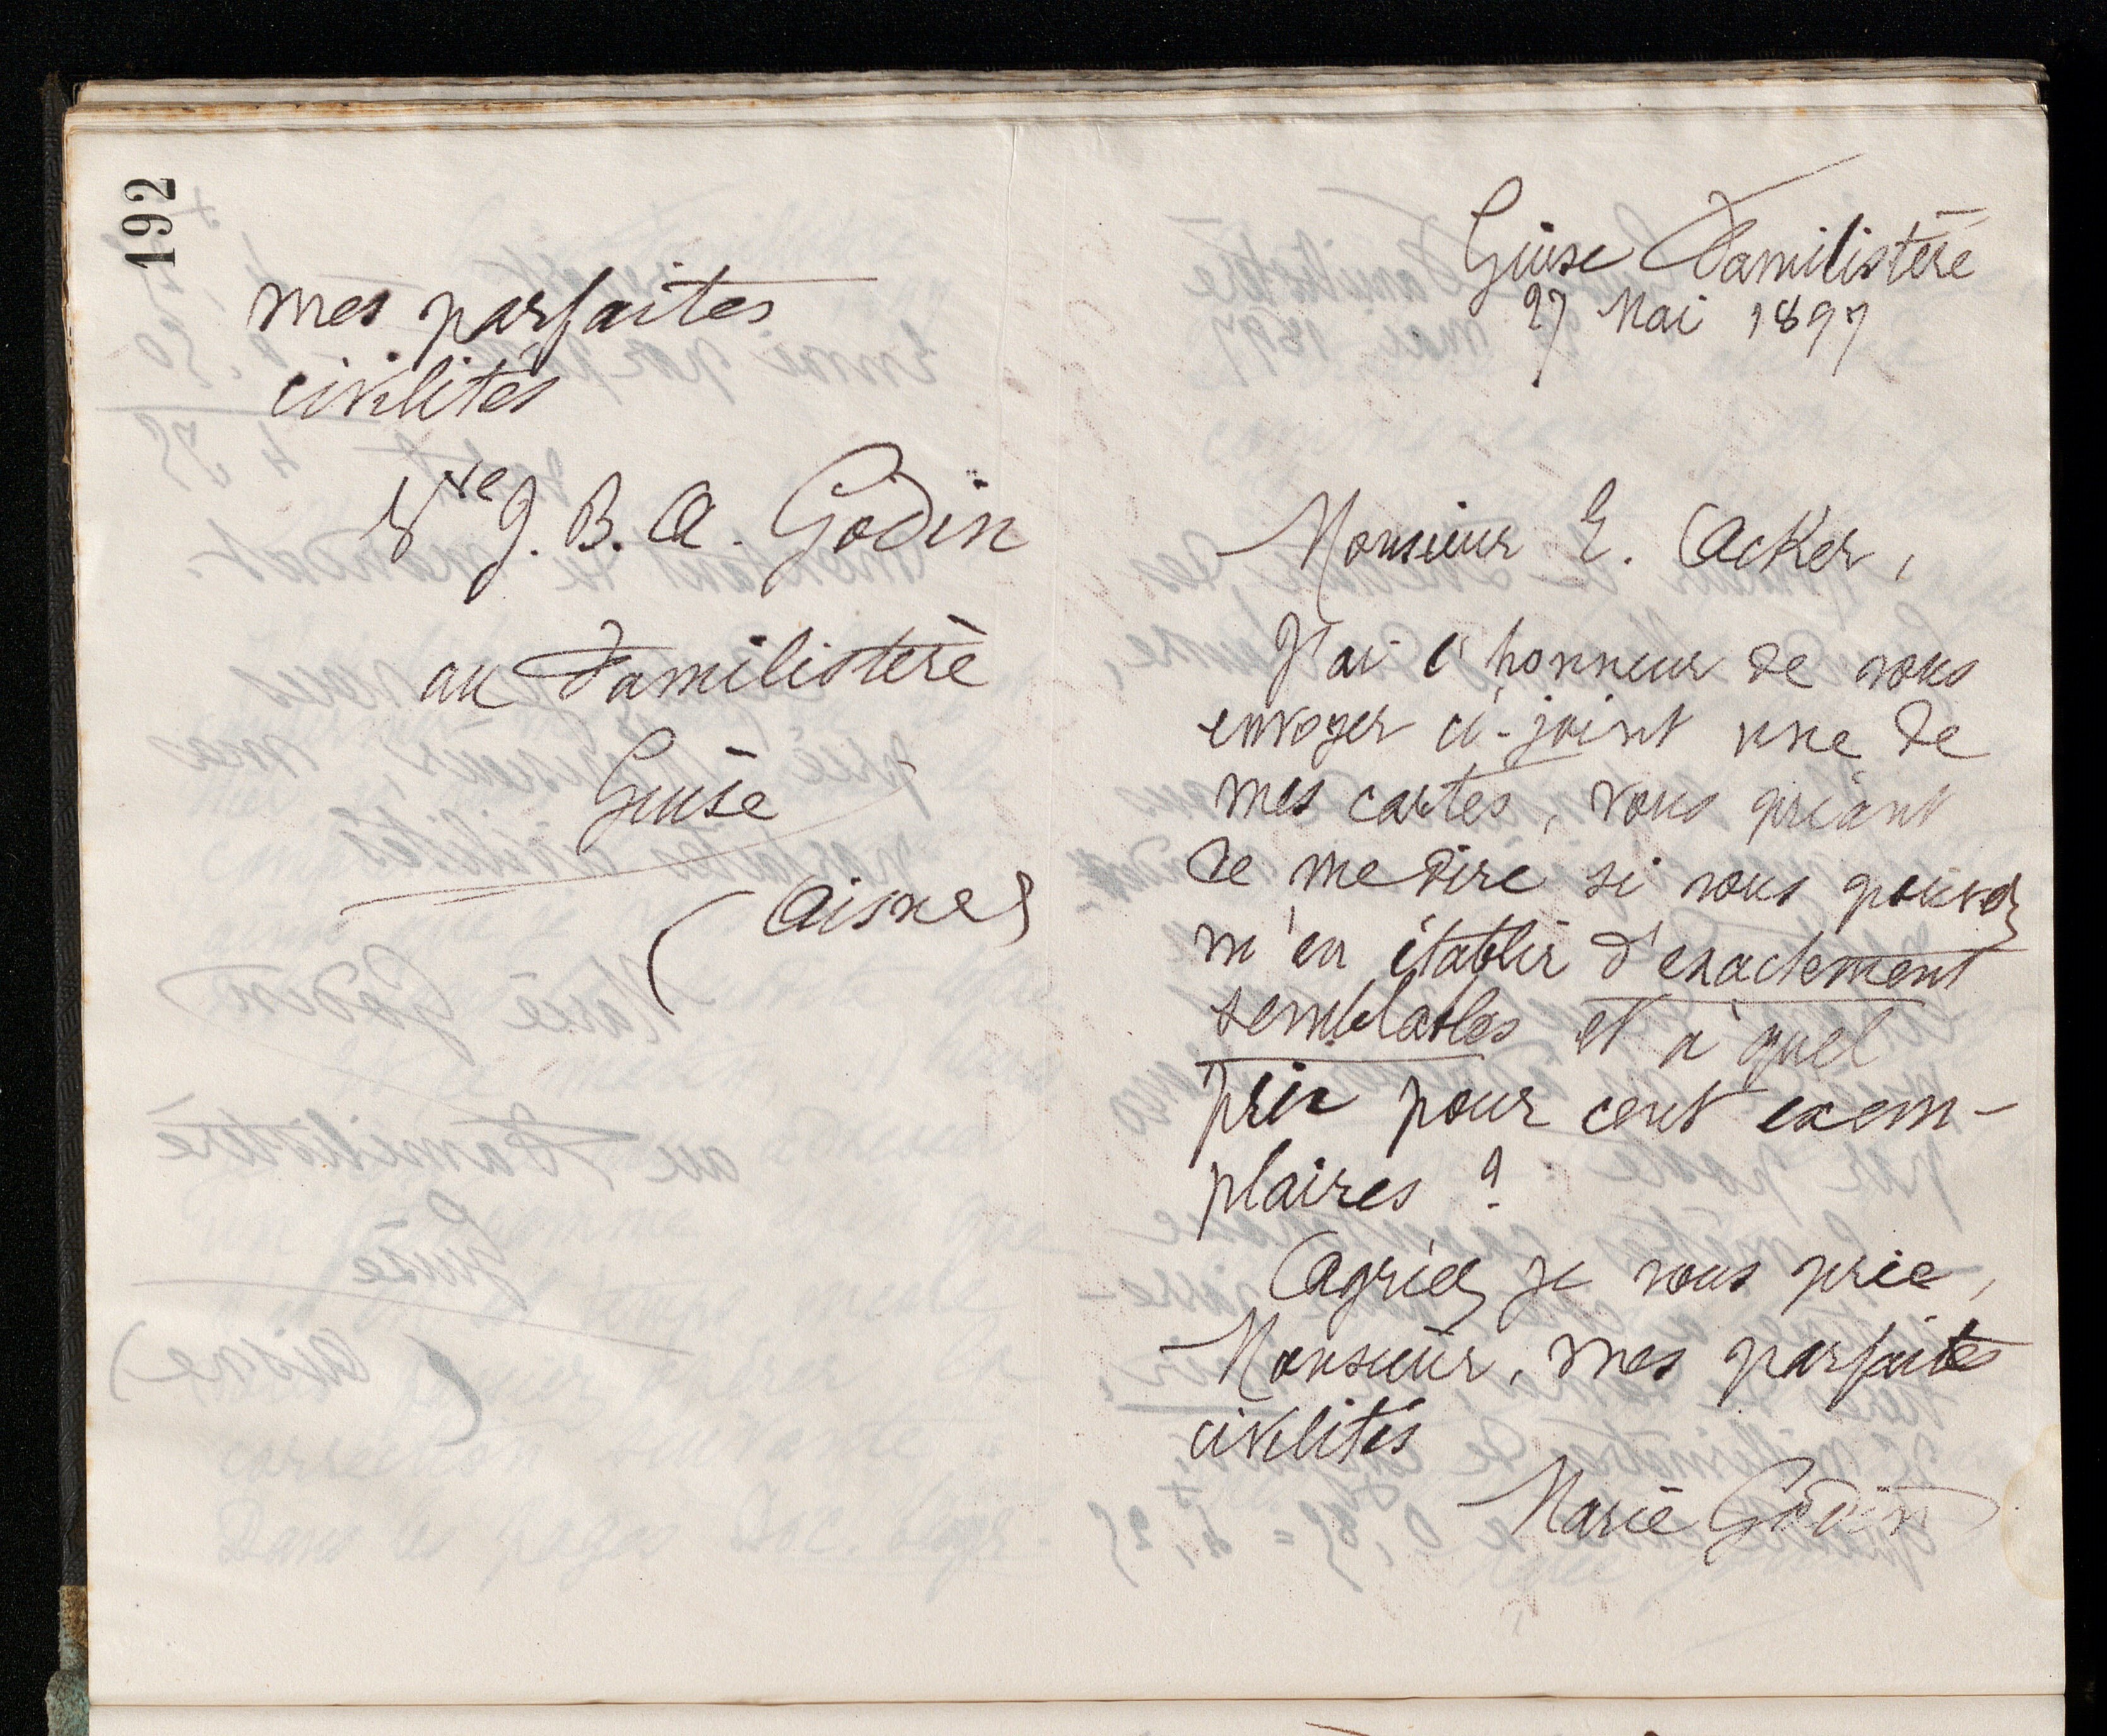 192
mes parfaites
civilités
Vve J. B. A. Godin
au Familistère
Guise
(Aisne)
Guise Familistère
27 Mai 1897
Monsieur E. Acker,
J'ai l'honneur de vous
envoyer ci-joint une de
mes cartes, vous priant
de me dire si vous pouvez
m'en établir d'exactement
semblables et à quel
prix pour cent exem-
plaires ?
Agréez je vous prie,
Monsieur, mes parfaites
civilités
Marie Godin